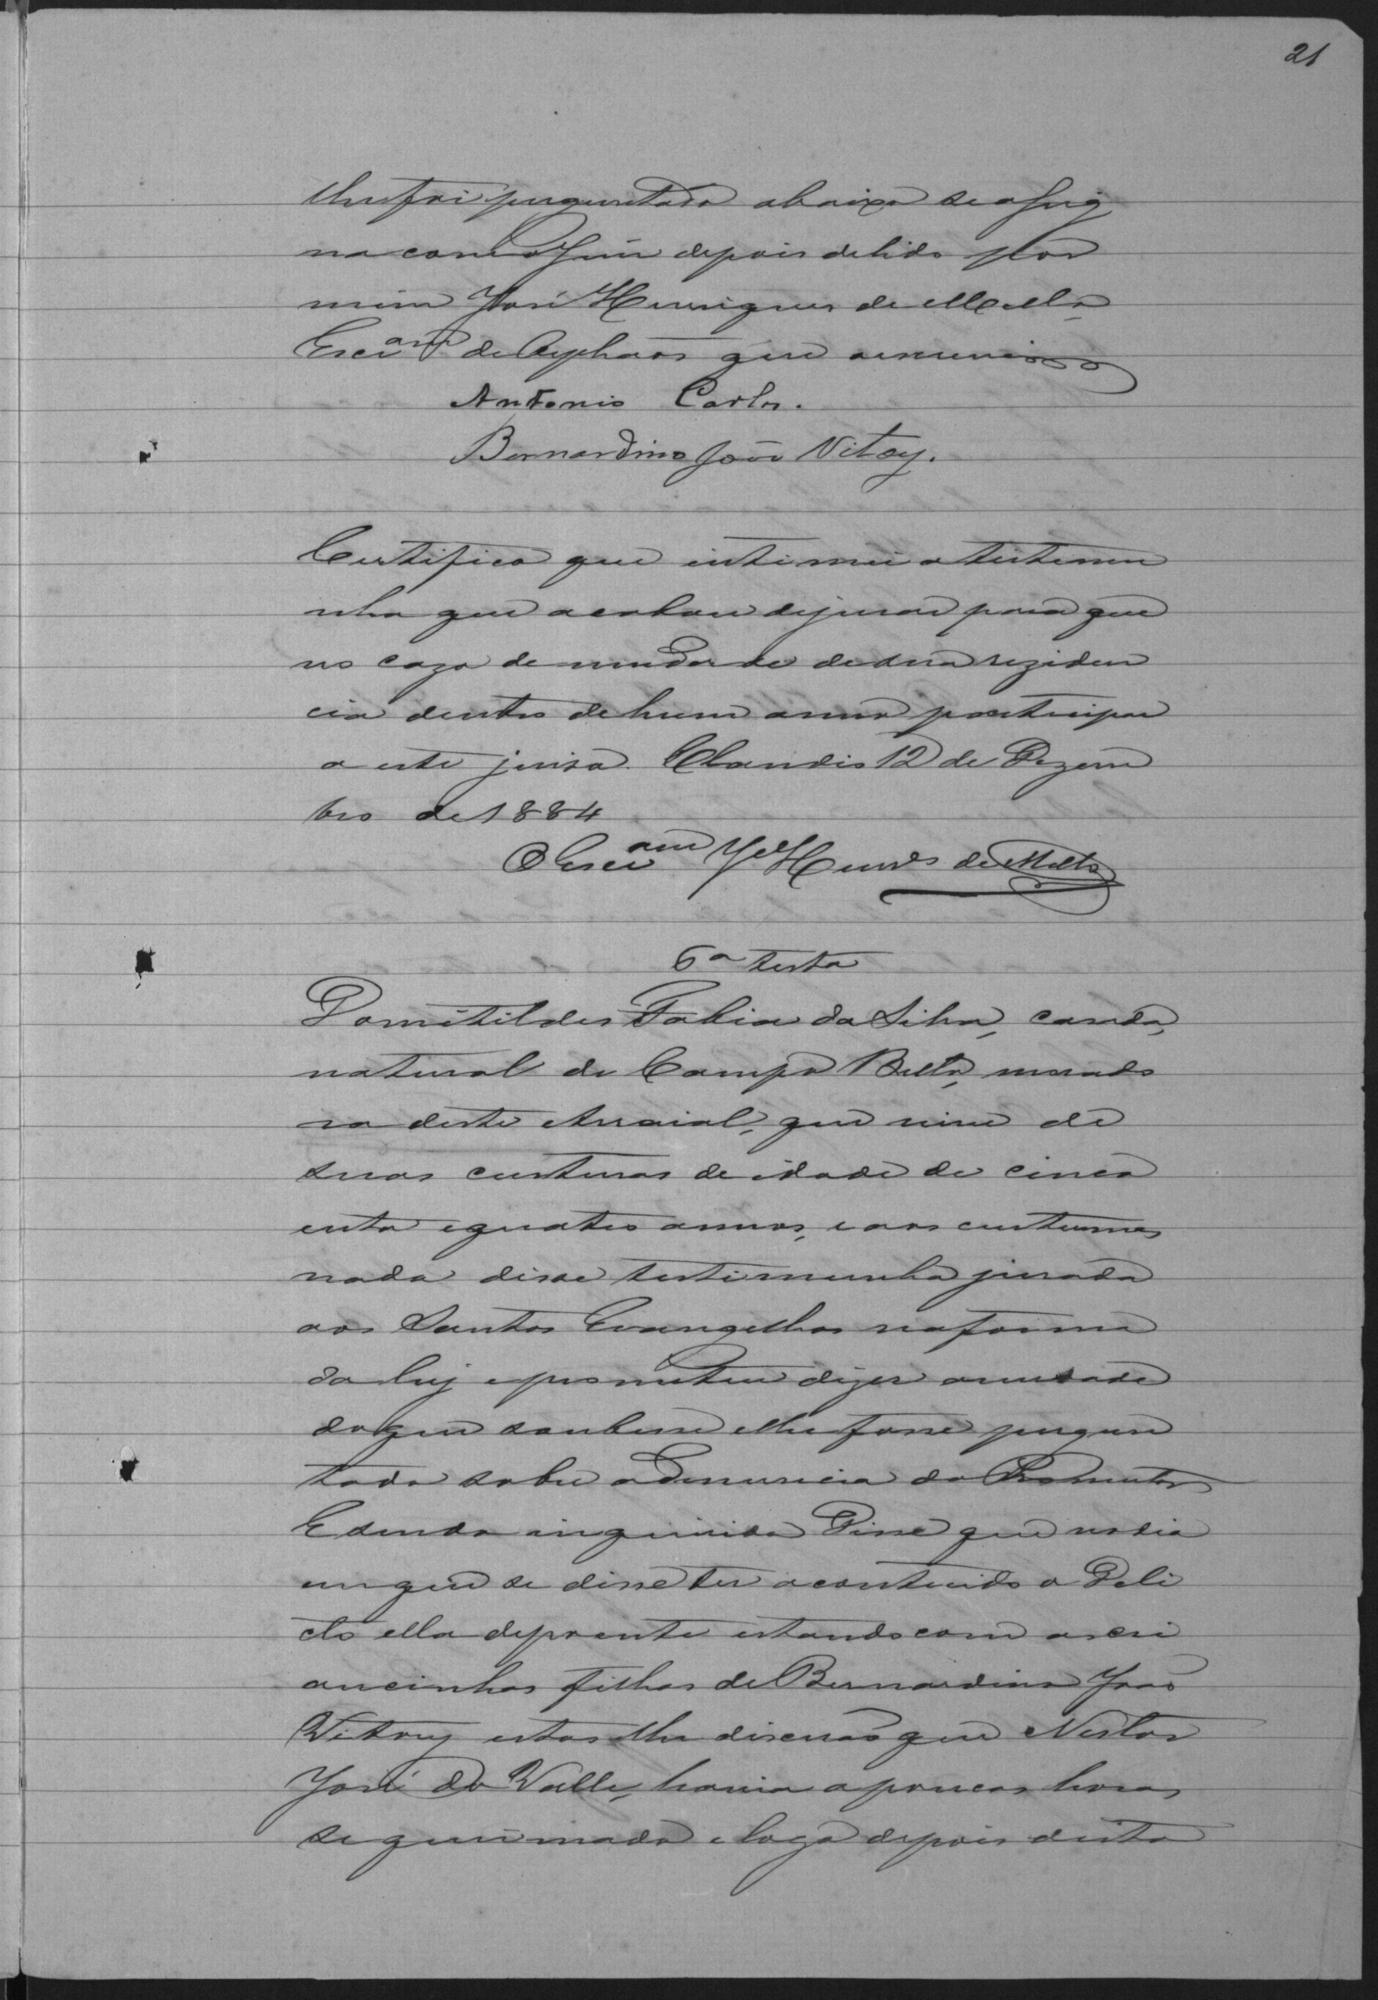 21
lhe foi perguntado abaixo se assig
na com o Juis depois de lido por
mim José Henriques de Mello,
Escr.am de Orphaos que o escrevi
Antonio Carlos.
Bernardino João Vitoy.
Certifico que intimei a testemu
nha que acabou dejurar para que
no cazo de mudar de de sua reziden
cia dentro de hum anno participar
a este juiso. Claudio 12 de Dezem
bro de 1884
O Escr.am J.e Henr.es de Mello
6a testa
Domitildes Fabia da Silva, casada,
natural de Campo Bello, morado
ra deste Arraial, que vive de
suas custuras de idade de cinco
enta e quatro annos, e aos custumes
nada disse testimunha jurada
aos Santos Evangelhos na forma
da ley e prometeu dizer averdade
do que soubesse e lhe fosse pergun
tado sobre a Denuncia do Promutor
E sendo inquirida Disse que no dia
em que se disse ter acontecido o Deli
cto ella depoente estando com as cri
ancinhas filhas de Bernardino João
Vitoy estas lhe disserão que Nestor
José do Valle, havia a poucas horas
se queimado e logo depois desta